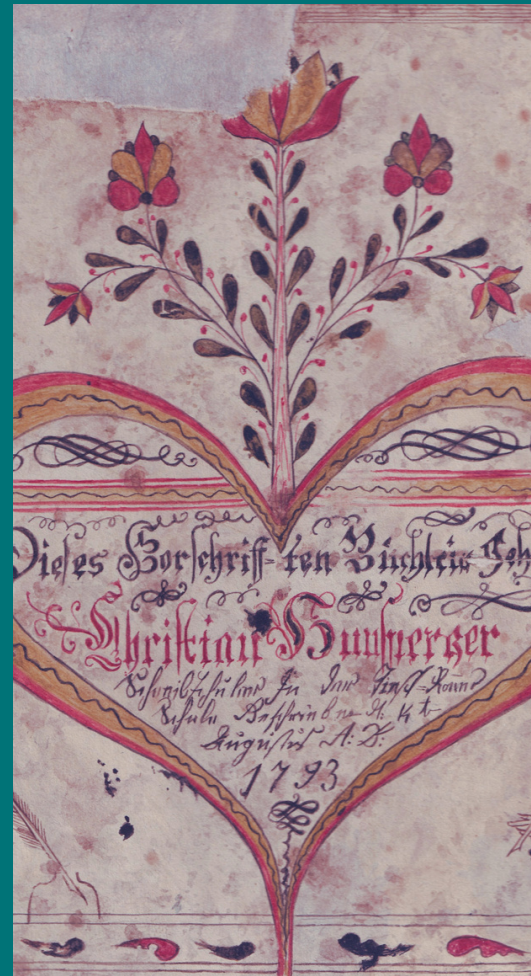 Dieses Vorschrifften Büchlein Geh
Christian Hunsperger
Schreibschüler In der
Schule Beschrieben d. 4t
Augustus A: D:
1793